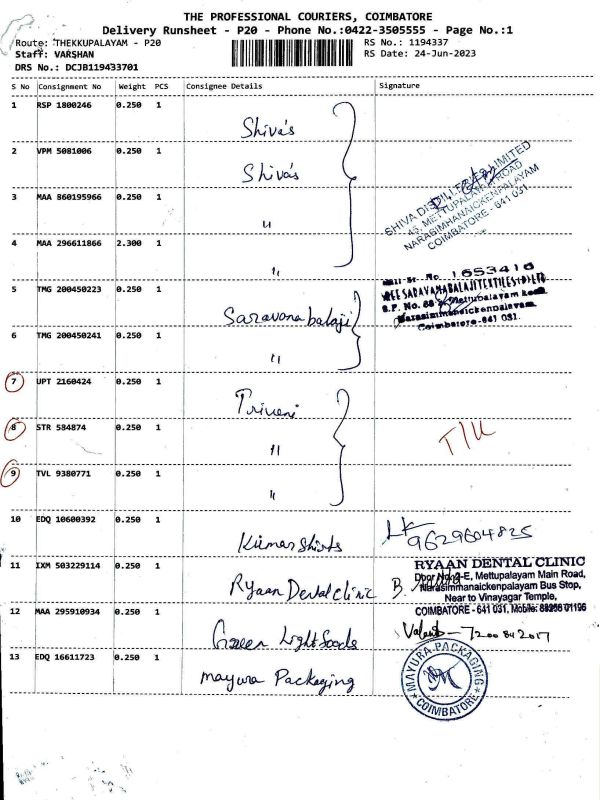 THE PROFESSIONAL COURIERS, COIMBATORE
Delivery Runsheet - P20 - Phone No.:0422-3505555 - Page No.:1
Route: THEKKUPALAYAM - P20
RS No.: 1194337
Staff: VARSHAN
RS Date: 24-Jun-2023
DRS No.: DCJB119433701
S No Consignment No Weight PCS Consignee Details Signature
1 RSP 1800246 0.250 1
Shiva's
2 VPM 5081006 0.250 1
Shiva's
3 MAA 860195966 0.250 1
"
4 MAA 296611866 2.300 1
"
SHIVA DISTILLERIES LIMITED
45, METTUPALAYAM ROAD
NARASIMHANAICKENPALAYAM
COIMBATORE - 641 031
5 TMG 200450223 0.250 1
Saravana balaji
6 TMG 200450241 0.250 1
"
1653416
S.F. No. 88 Mettupalayam Road
Narasimmanaickenpalayam
Coimbatore-641 031.
7 UPT 2160424 0.250 1
Triveni
8 STR 584874 0.250 1
"
T/U
9 TVL 9380771 0.250 1
"
10 EDQ 10600392 0.250 1
Kumar Shirts
9629604825
11 IXM 503229114 0.250 1
Ryaan Dental clinic
RYAAN DENTAL CLINIC
Mettupalayam Main Road,
Narasimmanaickenpalayam Bus Stop,
Near to Vinayagar Temple,
COIMBATORE - 641 031, Mobile:
12 MAA 295910934 0.250 1
Green Light Foods
7200842017
13 EDQ 16611723 0.250 1
Mayura Packaging
MAYURA PACKAGING
COIMBATORE